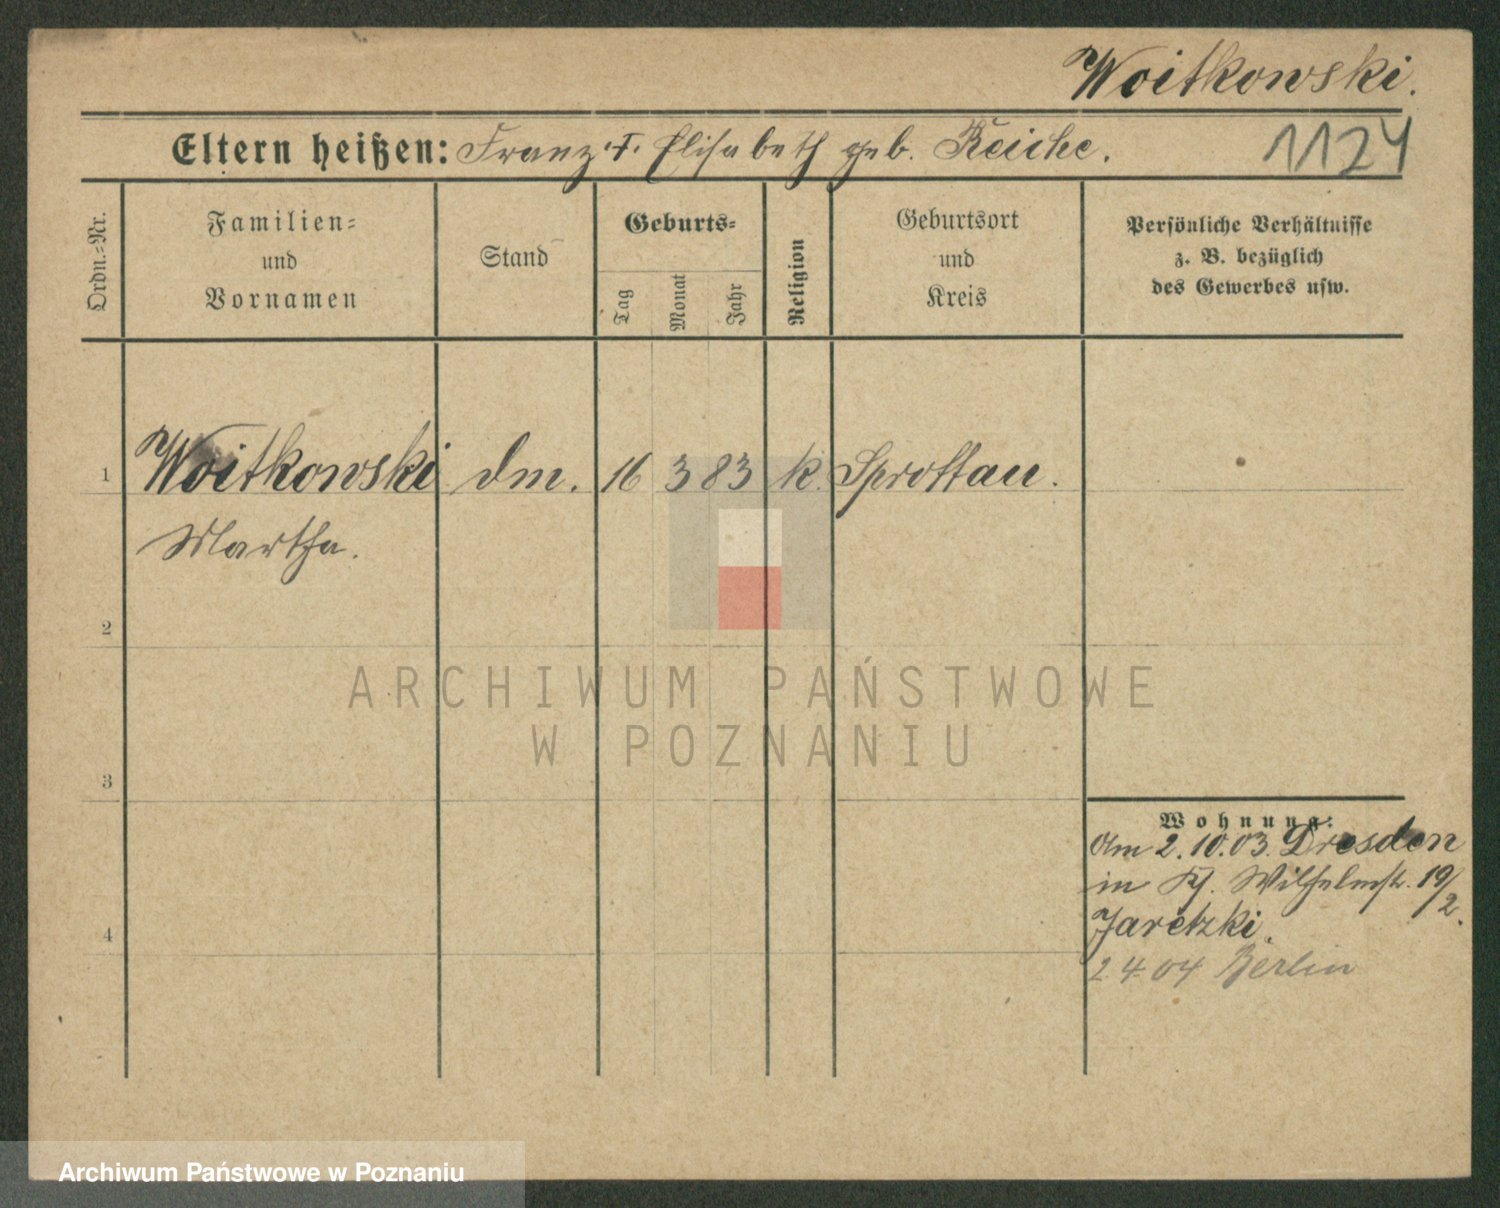 Woitkowski.
Eltern heißen: Franz. †. Elisabeth geb. Reiche.
1124
Ordn.=Nr.
Familien=
und
Vornamen
Stand
Geburts=
Tag
Monat
Jahr
Religion
Geburtsort
und
Kreis
Persönliche Verhältnisse
z. B. bezüglich
des Gewerbes usw.
1 Woitkowski dm. 16 3 83 k. Sprottau.
Martha.
2
3
4
Wohnung:
Am 2.10.03. Dresden
in Wilhelmstr. 19/2.
Jaretzki.
2 4 04 Berlin
ARCHIWUM PAŃSTWOWE
W POZNANIU
Archiwum Państwowe w Poznaniu